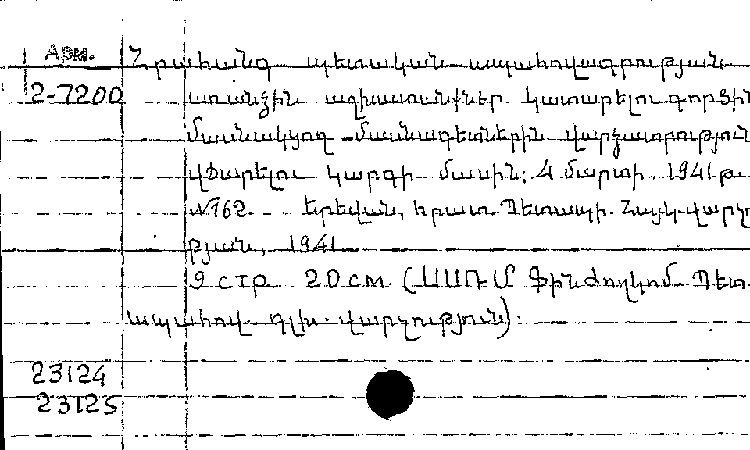 Арм. Հրահանգ պետական ապահովագրության
2-7200 առանձին աշխատունքներ կատարելու գործին
մասնակցող մասնագետներին վարձատրություն
վճարելու կարգի մասին: 4 մարտի 1941 թ.
№162. Երեվան, հրատ. Պետապ. Հայկ. վարչու
թյան, 1941
9 стр 20 см (ՍՍՌՄ Ֆինժողկոմ Պետ.
ապահով. գլխ. վարչություն):
23124
23125